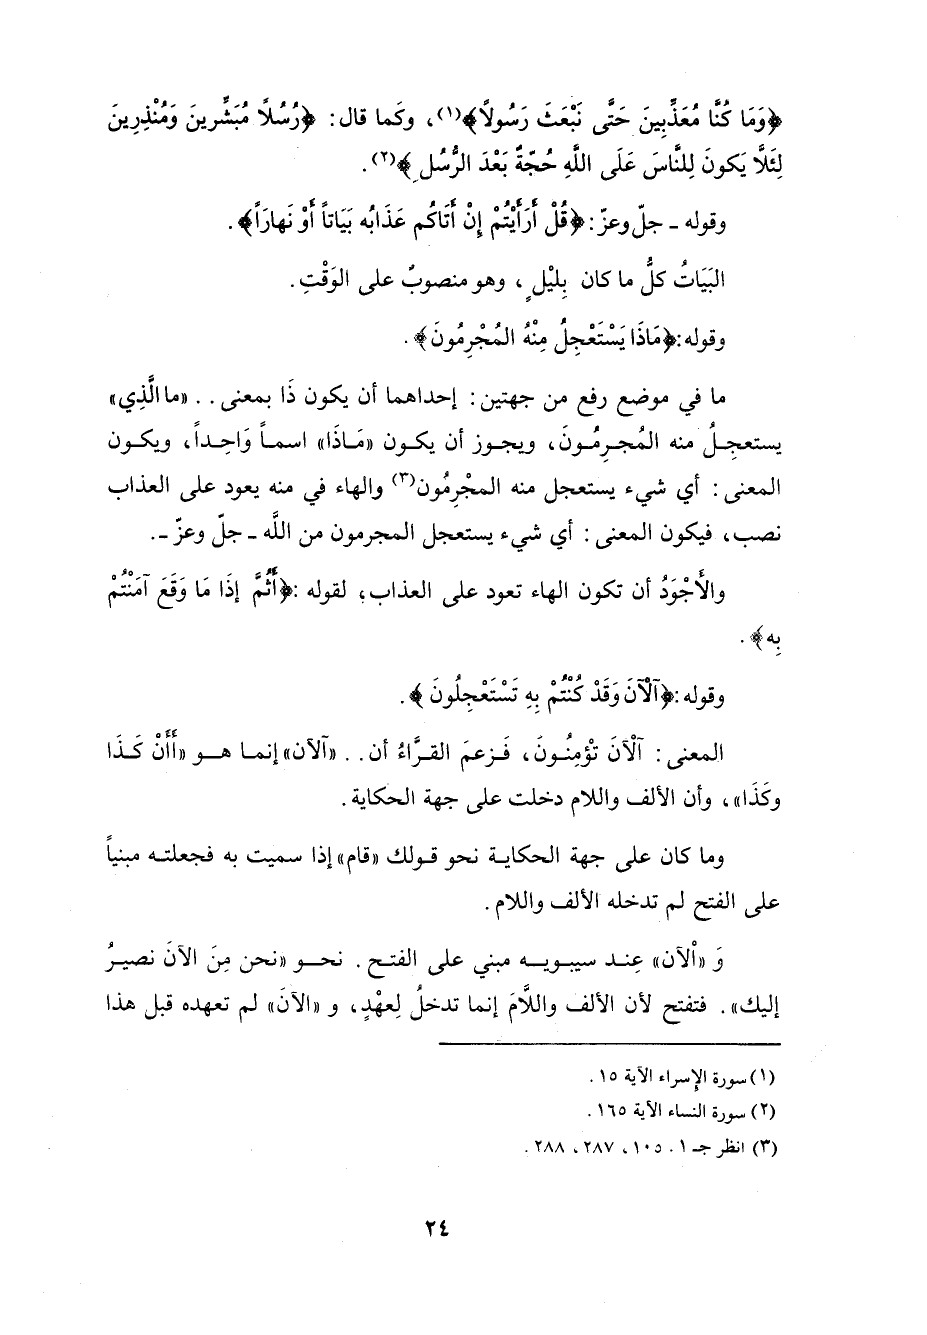 ﴿وَمَا كُنَّا مُعَذِّبِينَ حَتَّى نَبْعَثَ رَسُولًا﴾(١)، وكَما قال: ﴿رُسُلاً مُبَشِّرِينَ وَمُنْذِرِينَ
لِئَلَّا يَكونَ لِلنَّاسَ عَلَى اللَّهِ حُجّةٌ بَعْدَ الرُّسُلِ﴾(٢).
وقوله - جلّ وعزّ: ﴿قُلْ أَرَأَيْتُمْ إِنْ أَتَاكُم عَذَابُه بَيَاتاً أَوْ نَهارَاً﴾.
البَيَاتُ كلُّ ما كان بِلَيْلٍ، وهو منصوبٌ على الوَقْتِ.
وقوله: ﴿مَاذَا يَسْتَعْجِلُ مِنْهُ المُجْرِمُونَ﴾.
ما في موضع رفع من جهتين: إحداهما أن يكون ذَا بمعنى.. «ما الَّذِي»
يستعجِلُ منه المُجرِمُونَ، ويجوز أن يكون «مَاذَا» اسماً وَاحِداً، ويكون
المعنى: أي شيء يستعجل منه المجْرِمُون(٣) والهاء في منه يعود على العذاب
نصب، فيكون المعنى: أي شيء يستعجل المجرمون من اللَّه - جلّ وعزّ -.
والأَجْوَدُ أن تكون الهاء تعود على العذاب؛ لقوله: ﴿أَثُمَّ إِذَا مَا وَقَعَ آمَنْتُمْ
بِه﴾.
وقوله: ﴿آلْآنَ وَقَدْ كُنْتُمْ بِهِ تَسْتَعْجِلُونَ﴾.
المعنى: آلْآنَ تؤمِنُونَ، فَزعمَ الفرَّاءُ أن.. «آلآن» إنما هو «أَأَنْ كَذَا
وكَذَا»، وأن الألف واللام دخلت على جهة الحكاية.
وما كان على جهة الحكاية نحو قولك «قام» إذا سميت به فجعلته مبنياً
على الفتح لم تدخله الألف واللام.
وَ «الْآن» عِند سيبويه مبني على الفتح. نحو «نحن مِنَ الآنَ نصيرُ
إليك». فتفتح لأن الألف واللَّامَ إنما تدخلُ لِعهْدٍ، و «الآنَ» لم تعهده قبل هذا
(١) سورة الإسراء الآية ١٥.
(٢) سورة النساء الآية ١٦٥.
(٣) انظر جـ ١. ١٠٥، ٢٨٧، ٢٨٨.
٢٤